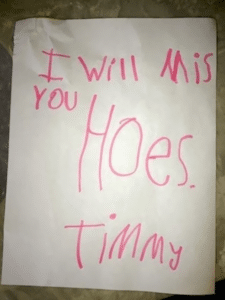 I Will Mis
YOU
HOes.
TiMMy